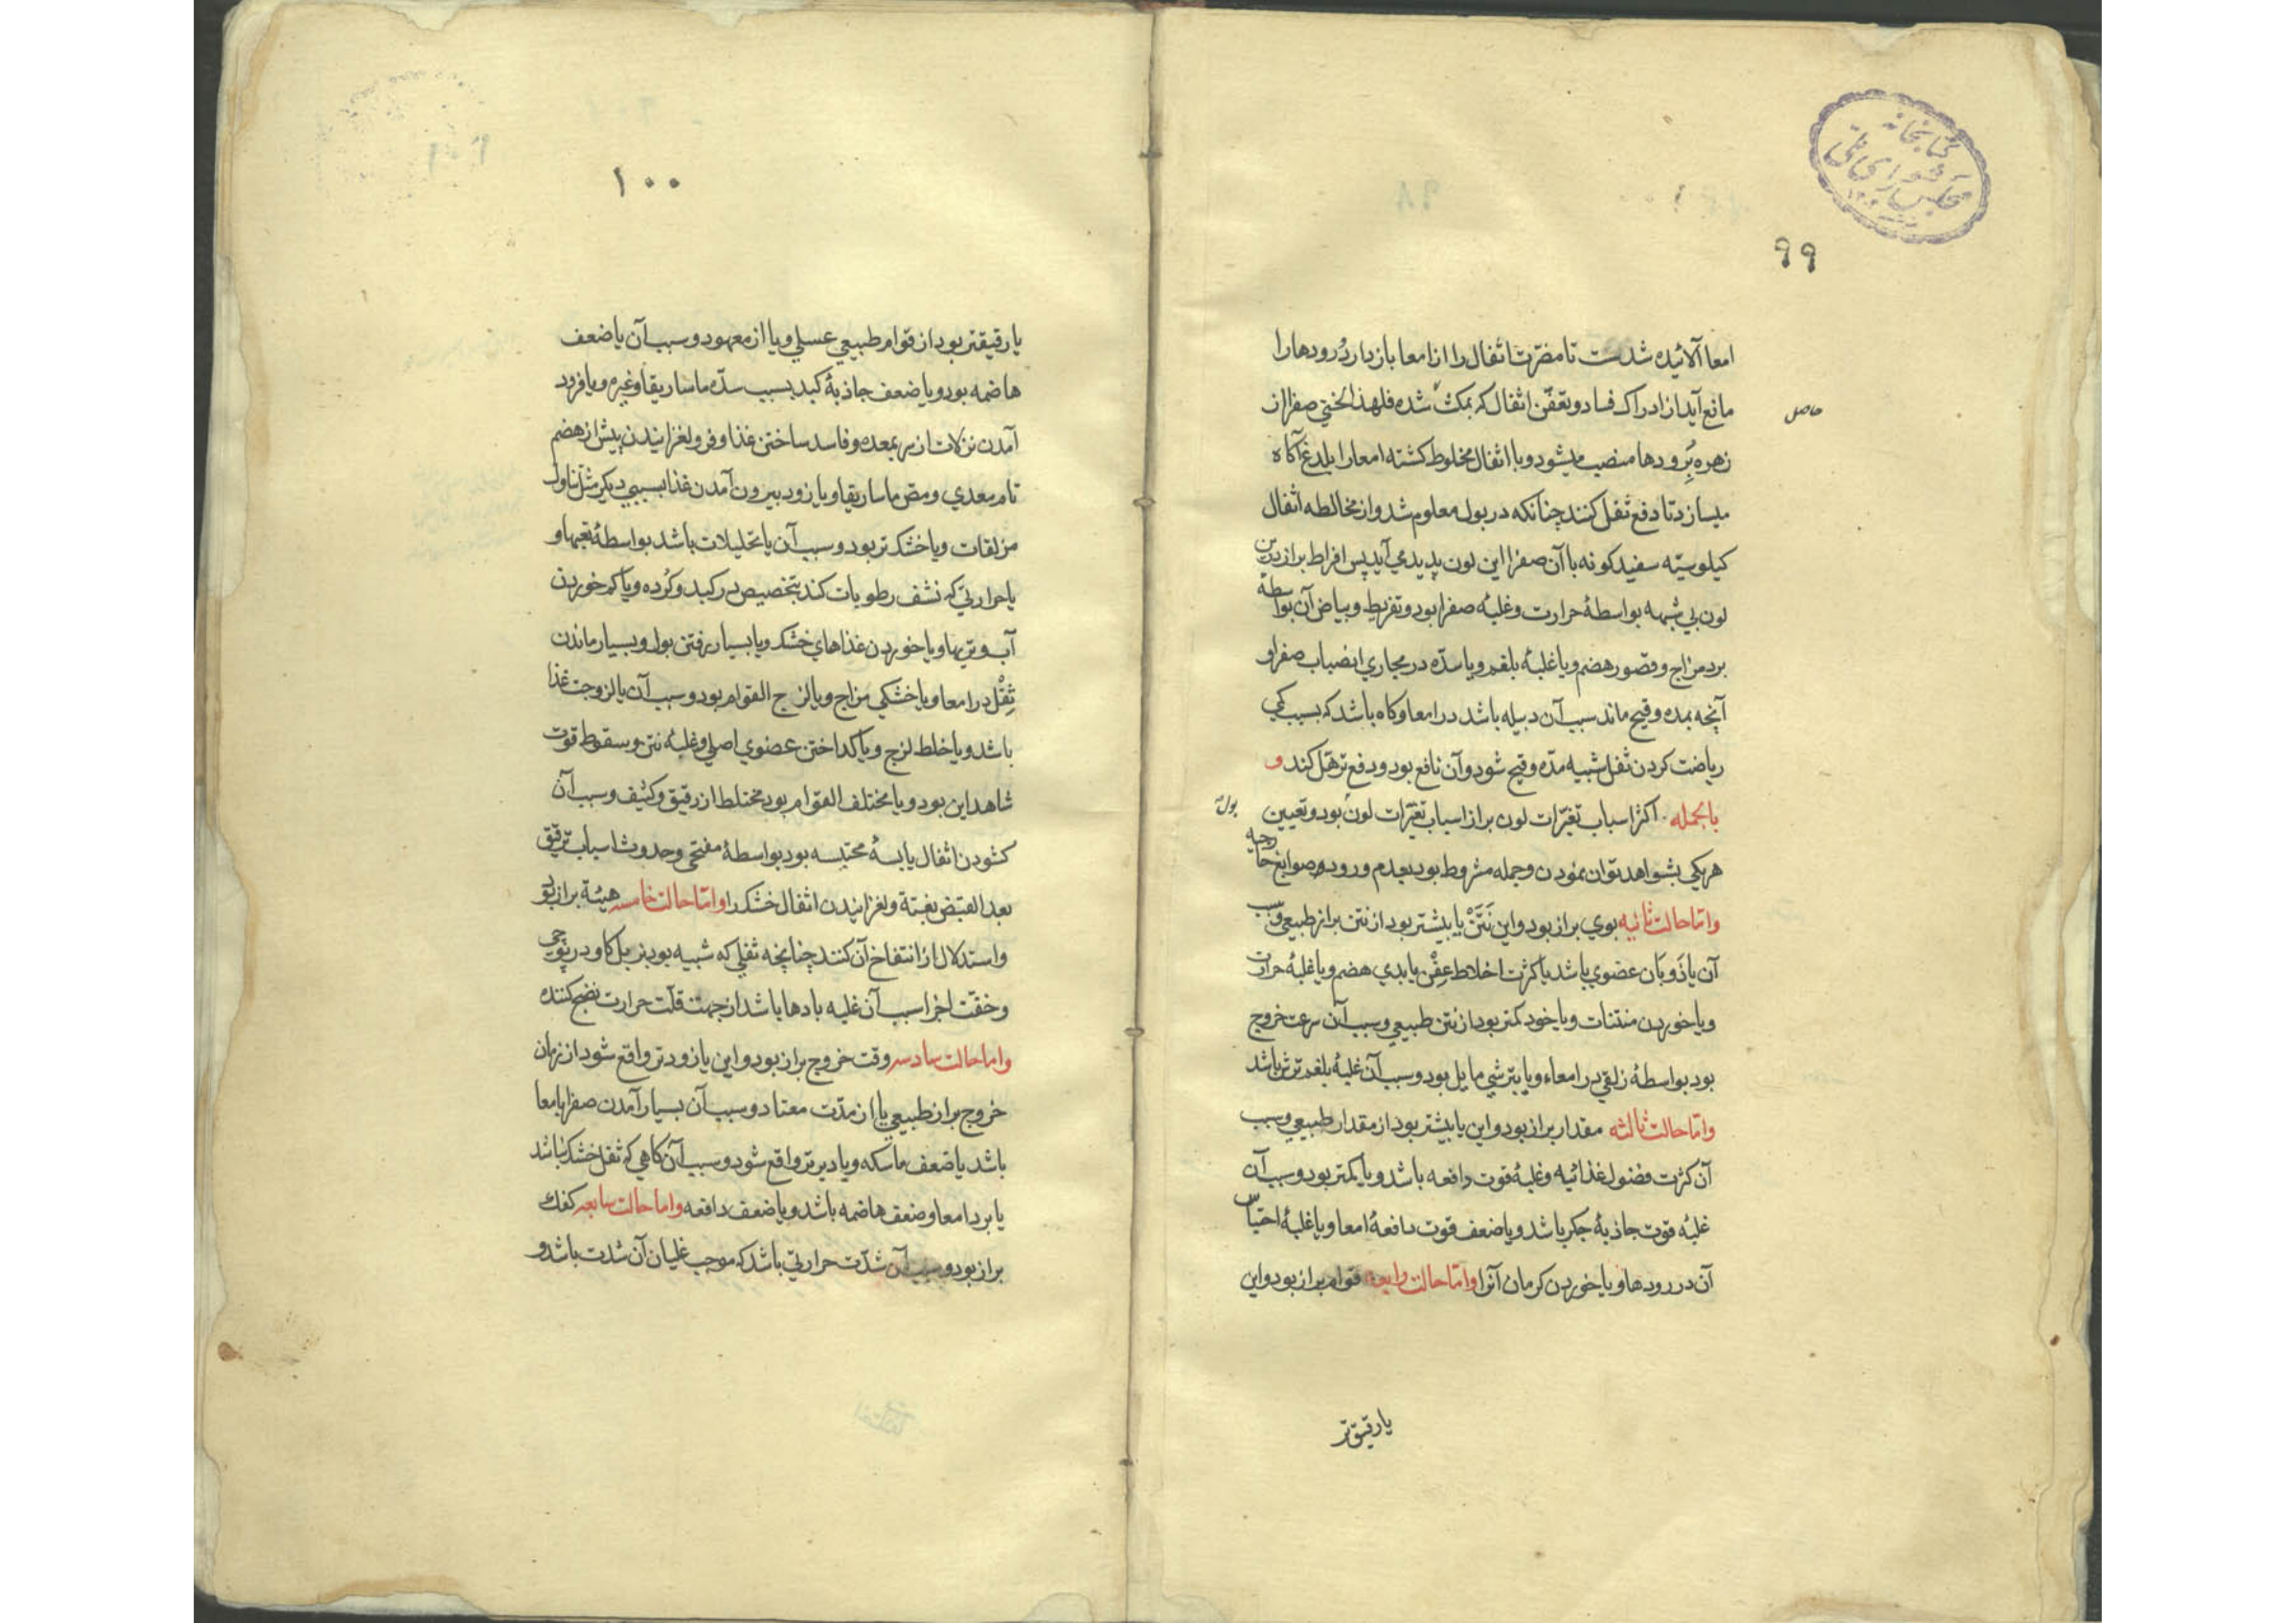 کتابخانه
مجلس شورای ملی
۹۹
امعا آلائیده شدست تا مضرّت اثفال را از امعا بازدارد و رودها را
مانع آید از ادراک فساد و تعفّن اثفال که بمکث شده فلهذا لختی صفرا از
حاصل
زهره بِرودها منصب میشود و با اثفال مخلوط کشته امعا را بلدغ آکاه
میسازد تا دفع ثفل کنند چنانکه در بول معلوم شد و از مخالطه اثفال
کیلوسیّه سفید کونه با آن صفرا این لون پدید می آید پس افراط براز درین
لون بی شبهه بواسطهٔ حرارت و غلبهٔ صفرا بود و تفریط و بیاض آن بواسطه
برد مزاج و قصور هضم و یا غلبهٔ بلغم و یا سدّه در مجاری انصباب صفرا و
آنچه بمده و قیح ماند سبب آن دبیله باشد در امعا و کاه باشد که بسبب کمی
ریاضت کردن ثفل شبیه مدّه و قیح شود و آن نافع بود و دفع ترهّل کند و
بالجمله اکثر اسباب تغیّرات لون براز اسباب تغیّرات لون بود و تعیین
بول
هر یکی بشواهد توان نمودن و جمله مشروط بود بعدم ورود صوابغ خارجیه
وامّا حالت ثانیه بوی براز بود و این نَتَنْ یا بیشتر بود از نتن براز طبیعی و سبب
آن یا ذَوبَان عضوی باشد یا کثرت اخلاط عِفِنْ یا بدی هضم و یا غلبهٔ حرارت
و یا خوردن منتنات و یا خود کمتر بود از نتن طبیعی و سبب آن سرعت خروج
بود بواسطهٔ زلقی در امعاء و یا بترشی مایل بود و سبب آن غلبهٔ بلغم ترش باشد
وامّا حالت ثالثه مقدار براز بود و این یا بیشتر بود از مقدار طبیعی و سبب
آن کثرت فضول غذائیه و غلبهٔ قوت دافعه باشد و یا کمتر بود و سبب آن
غلبهٔ قوت جاذبهٔ جکر باشد و یا ضعف قوت دافعهٔ امعا و یا غلبهٔ احتباس
آن در رودها و یا خوردن کرمان آنرا وامّا حالت رابعه قوام براز بود و این
یا رقیق‌تر
۱۰۰
یا رقیقتر بود از قوام طبیعی عسلی و یا از معهود و سبب آن یا ضعف
هاضمه بود و یا ضعف جاذبهٔ کبد بسبب سدّه ماساریقا و غیره و یا فرود
آمدن نزلات از سر بمعده و فاسد ساختن غذا و فرو لغزانیدن پیش از هضم
تام معدی و مصّ ماساریقا و یا زود بیرون آمدن غذا بسببی دیکر مثل تناول
مزلقات و یا خشک تر بود و سبب آن یا تحلیلات باشد بواسطهٔ تعبها و
یا حرارتی که نشف رطوبات کند بتخصیص در کبد و کُرده و یا کم خوردن
آب و تریها و یا خوردن غذاهای خشک و یا بسیار رفتن بول و بسیار ماندن
ثِفْل در امعا و یا خشکی مزاج و یا لزج القوام بود و سبب آن یا لزوجت غذا
باشد و یا خلط لزج و یا کداختن عضوی اصلی و غلبهٔ نتن و سقوط قوت
شاهد این بود و یا مختلف القوام بود مختلط از رقیق و کثیف و سبب آن
کشودن اثفال یابسهٔ محتبسه بود بواسطهٔ مفتحی و حدوث اسباب ترقیق
بعد القبض بغتة و لغزانیدن اثفال خشک را وامّا حالت خامسه هیئة براز بود
و استدلال از انتفاخ آن کنند چنانچه ثفلی که شبیه بود بزبل کاو در
و خفّت اجزا سبب آن غلبه بادها باشد از جهت قلّت حرارت نضج کننده
واما حالت سادسه وقت خروج براز بود و این یا زودتر واقع شود از زمان
خروج براز طبیعی یا از مدّت معتاد و سبب آن بسیار آمدن صفرا بامعا
باشد یا ضعف ماسکه و یا دیرتر واقع شود و سبب آن کاهی که ثفل خشک نباشد
یا برد امعا و ضعف هاضمه باشد و یا ضعف دافعه واما حالت سابعه کفک
براز بود و سبب آن شدّت حرارتی باشد که موجب غلیان آن شدت باشد و